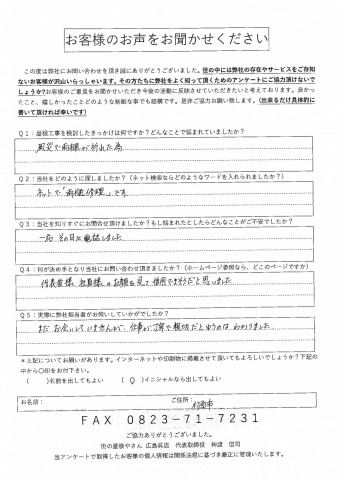 お客様のお声をお聞かせください
この度は弊社にお問い合わせを頂き誠にありがとうございました。世の中には弊社の存在やサービスをご存知
ないお客様が沢山いらっしゃいます。その方たちに弊社をよく知って頂くためのアンケートにご協力頂けないで
しょうか?お客様のご意見をお聞かせいただき今後の活動に反映させていただきたいと考えております。良かっ
たこと、嬉しかったことどのような些細な事でも結構です。是非ご協力お願い致します。(出来るだけ具体的に
書いて頂ければ幸いです)
Q1:屋根工事を検討したきっかけは何ですか?どんなことで悩まれていましたか?
風災で雨樋が折れた為
Q2:当社をどのように探しましたか?(ネット検索ならどのようなワードを入れられましたか?)
ネットで「雨樋修理」です
Q3:当社を知りすぐにお問合せ頂けましたか?もし悩まれたとしたらどんなことがご不安でしたか?
一応その日に電話しました
Q4:何が決め手となり当社にお問い合わせ頂きましたか?(ホームページ参照なら、どこのページですか)
代表者様、社員様のお顔を見て信用できそうだと思いました
Q5:実際に弊社担当者がお伺いしていかがでしたか?
まだお会いしていませんが、仕事が丁寧で親切だというのはわかりました
*上記についてお願いがあります。インターネットや印刷物に掲載させて頂いてもよろしいでしょうか?下記の
中から〇印をお付下さい。
( )名前を出してもよい ( O )イニシャルなら出してもよい
お名前: ご住所:
FAX 0823-71-7231
ご協力ありがとうございました。
街の屋根やさん 広島呉店 代表取締役 神渡 信司
当アンケートで採用したお客様の個人情報は関係法規に基づき厳正に管理いたします。